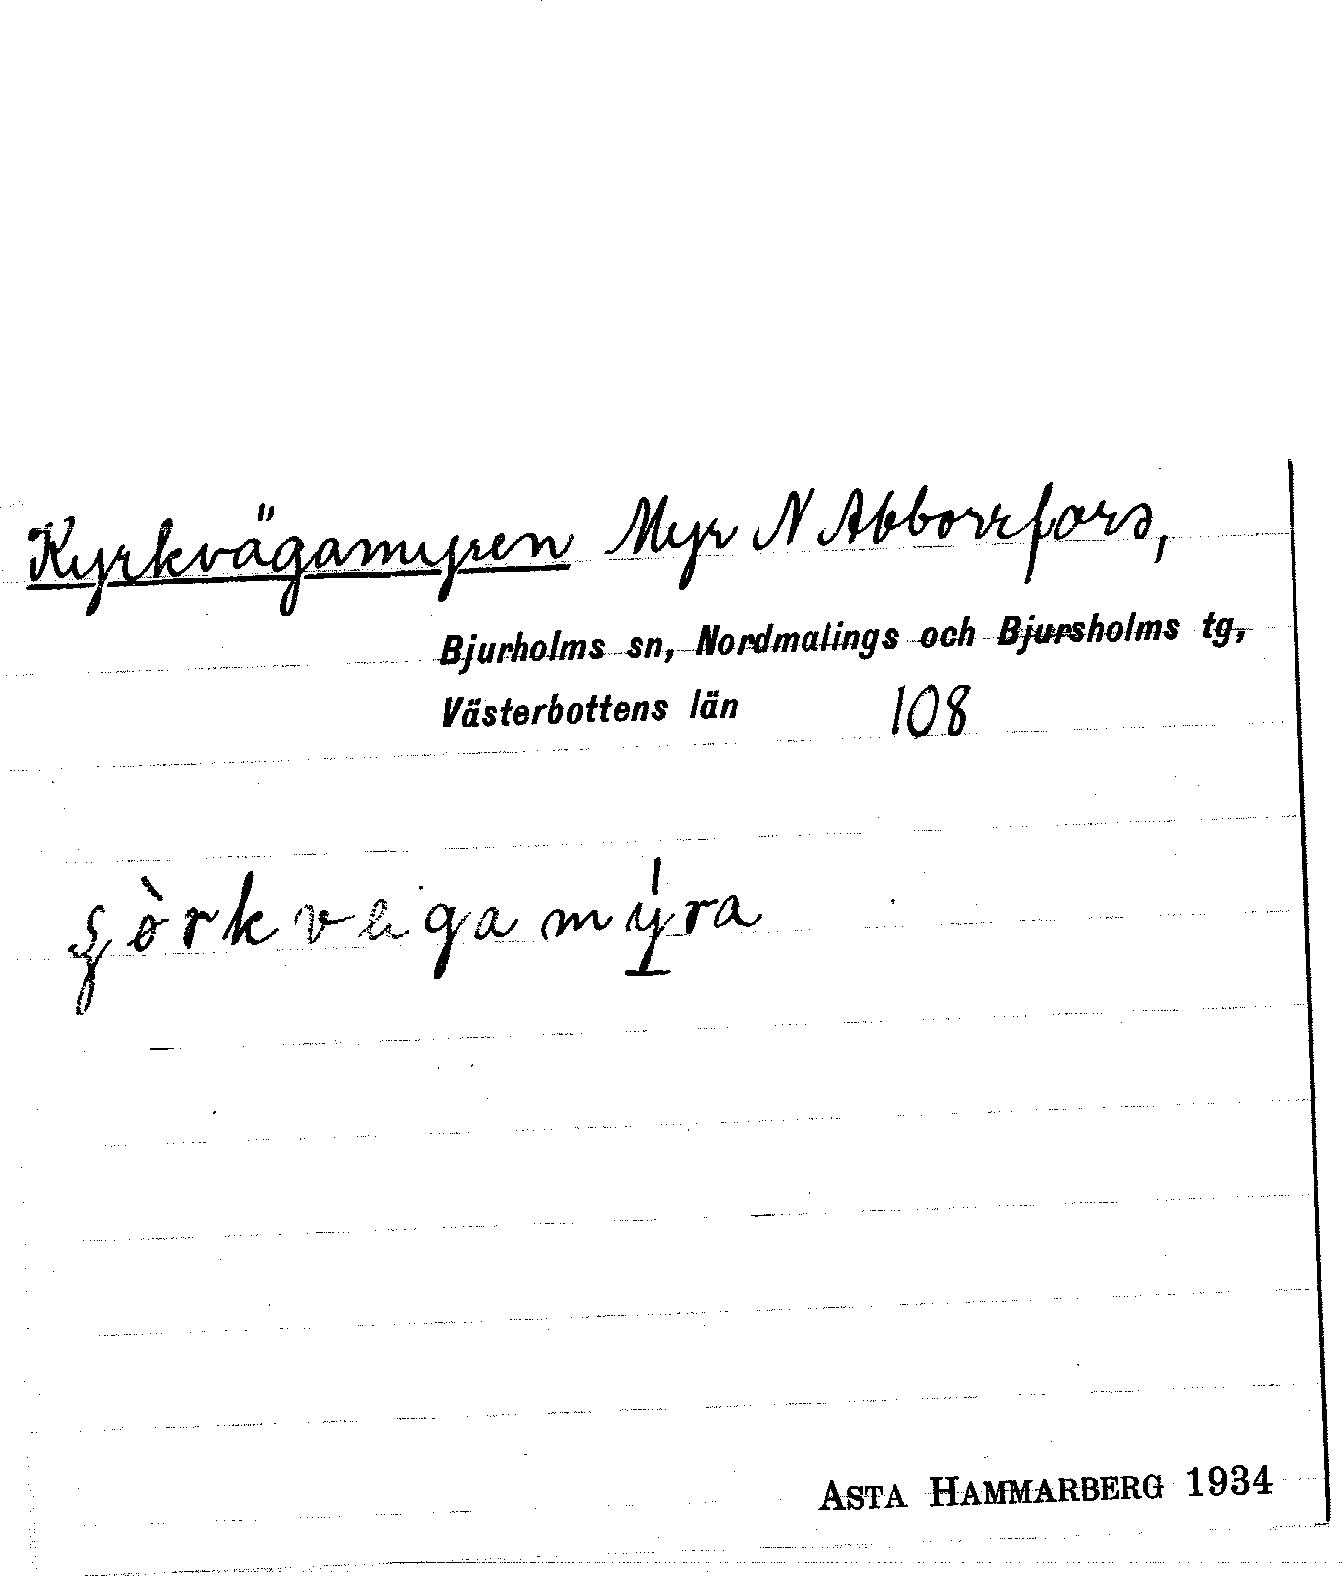 Kyrkvägamyren Myr N Abborrfors,
Bjurholms sn, Nordmalings och Bjursholms tg,
Västerbottens län 108
görkveigamýra
ASTA HAMMARBERG 1934